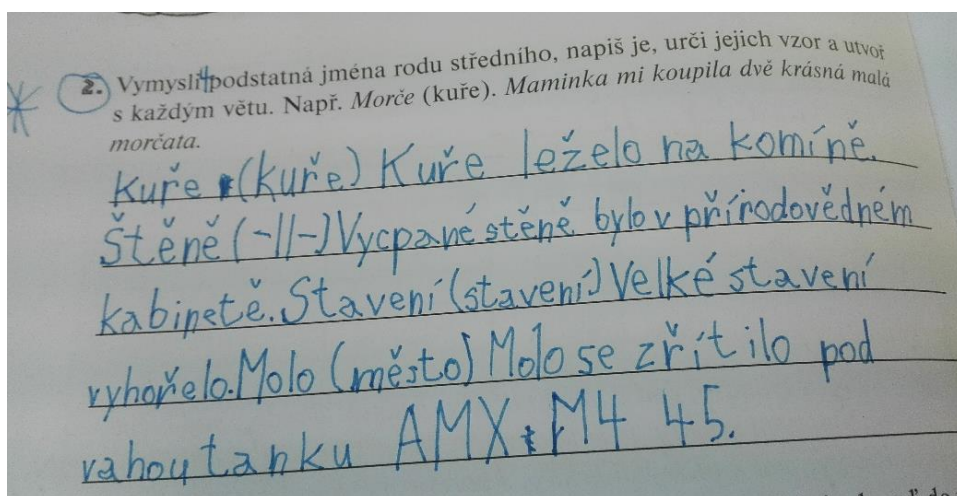 2. Vymysli 4 podstatná jména rodu středního, napiš je, urči jejich vzor a utvoř
s každým větu. Např. Morče (kuře). Maminka mi koupila dvě krásná malá
morčata.
Kuře (kuře) Kuře leželo na komíně.
Štěně (-||-) Vycpané stěně bylo v přírodovědném
kabinetě. Stavení (stavení) Velké stavení
vyhořelo. Molo (město) Molo se zřítilo pod
vahou tanku AMX M4 45.